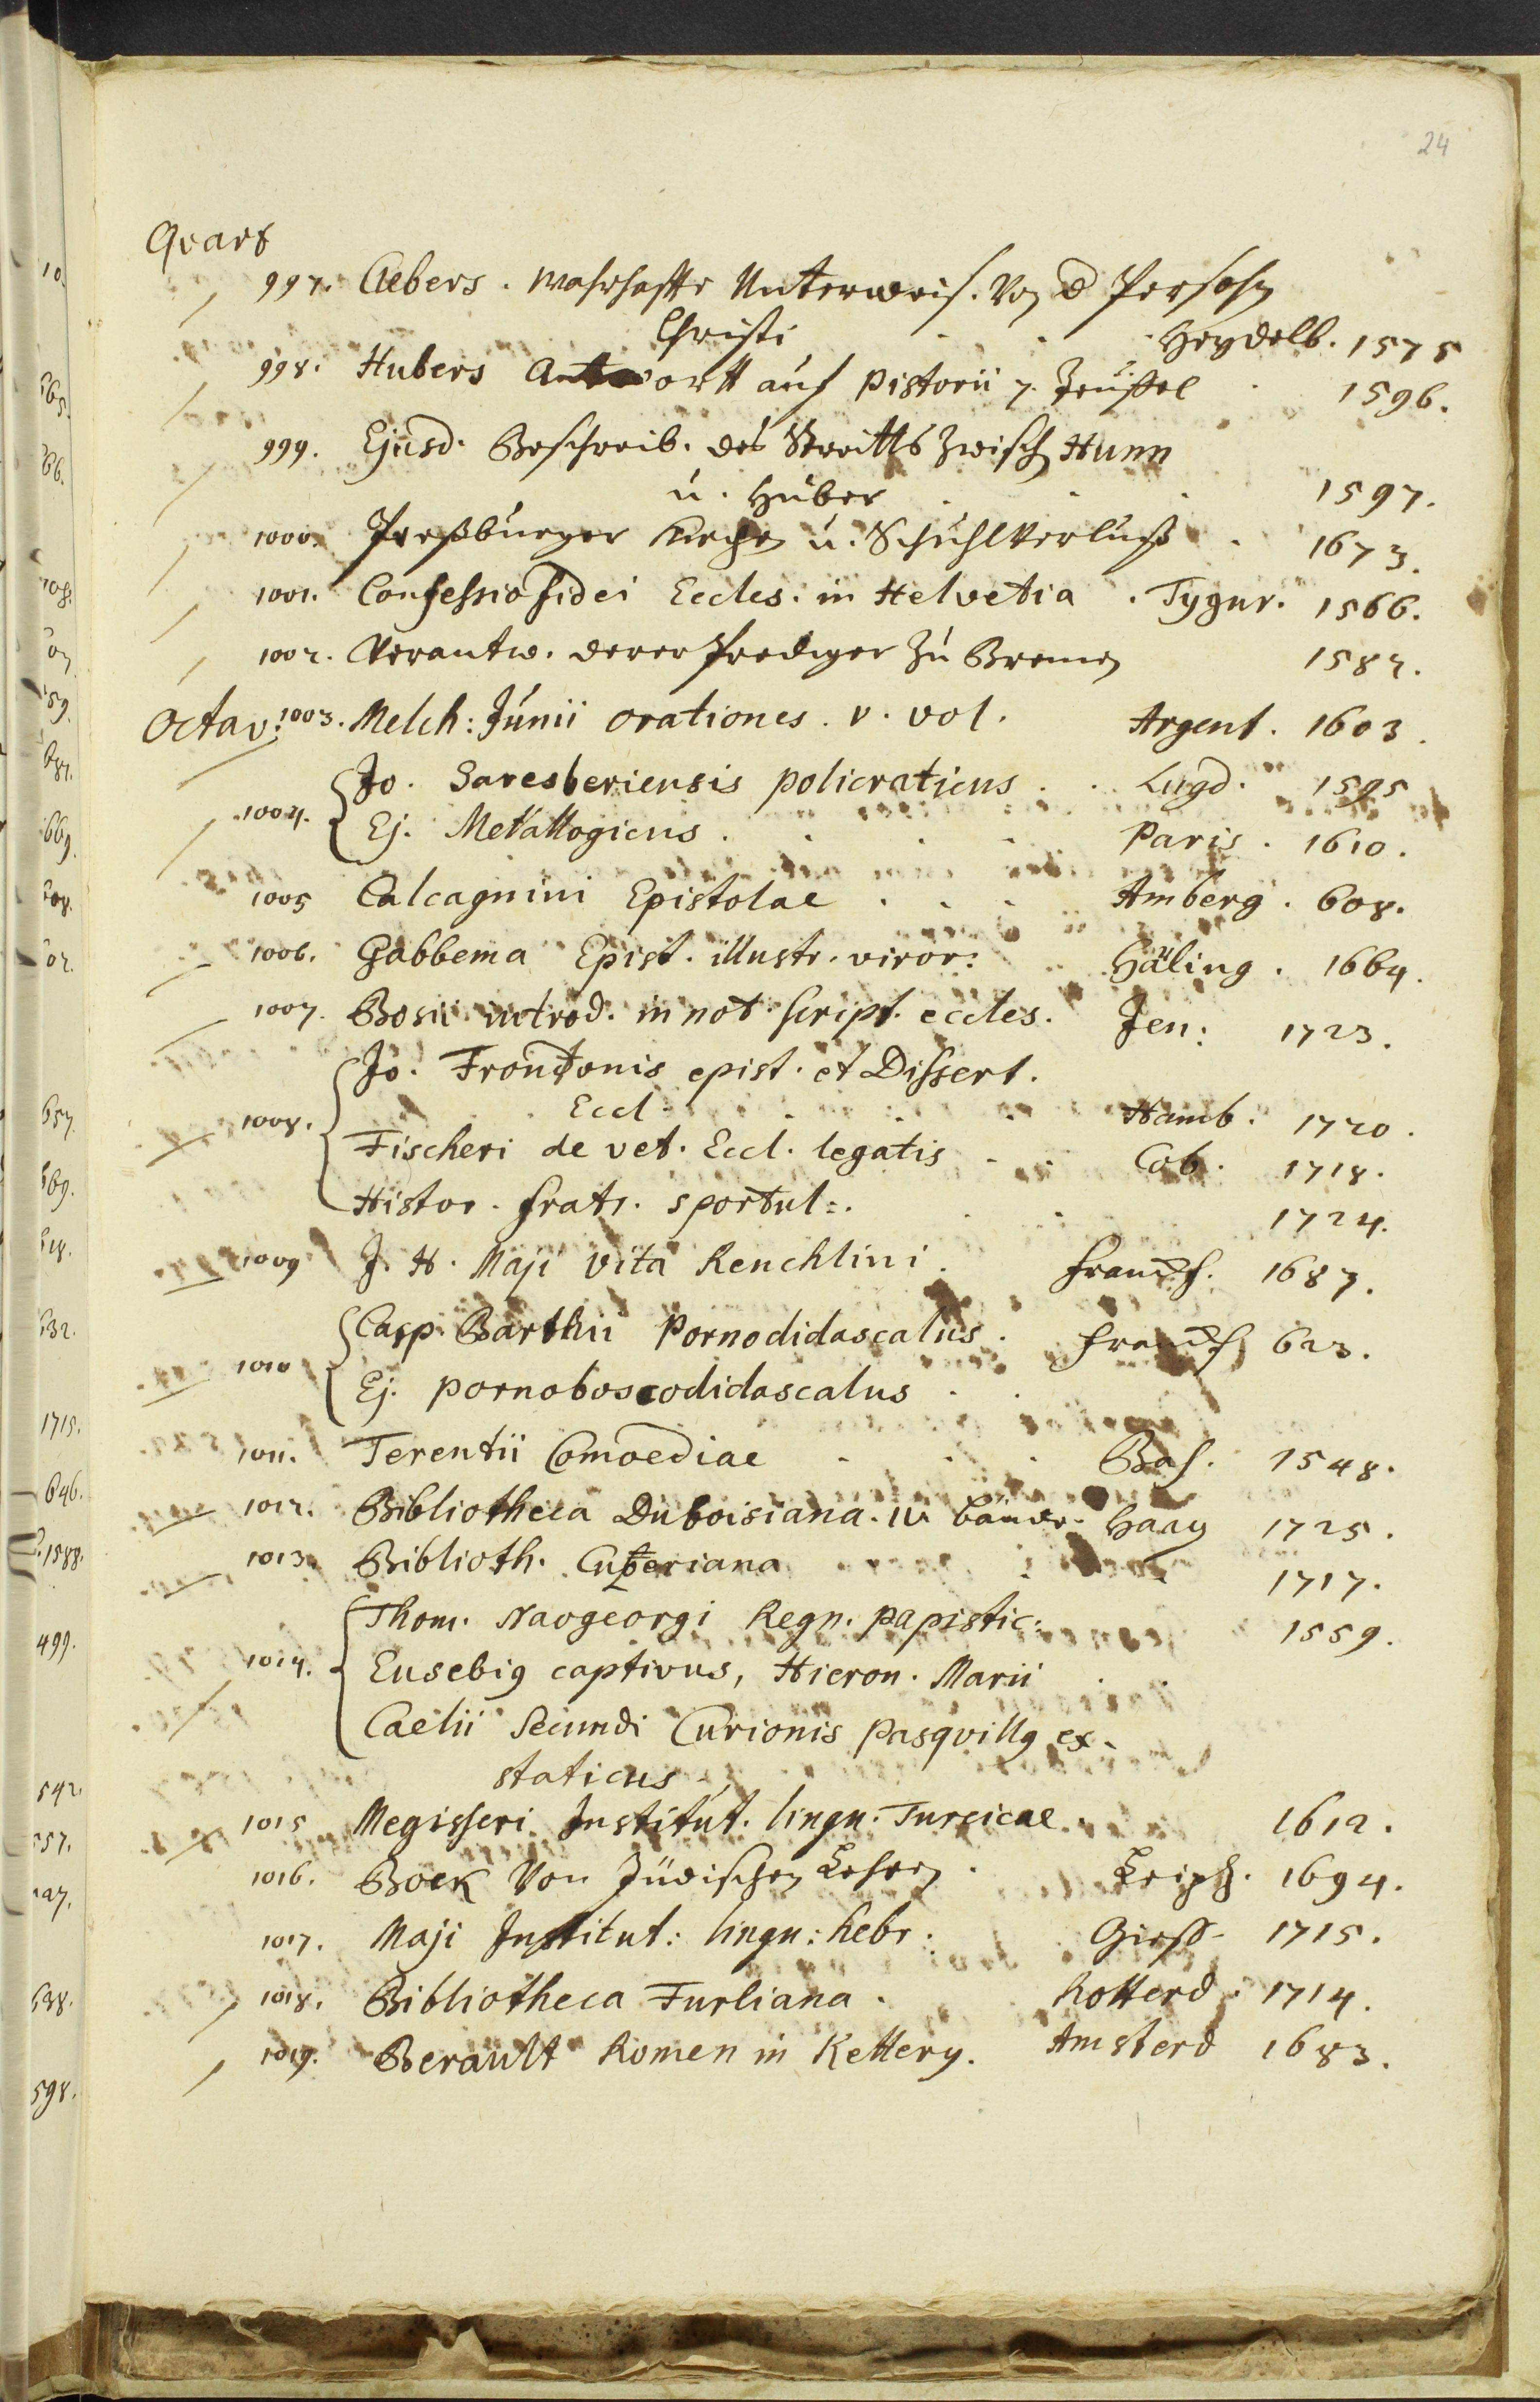 24
Qvart
997. Aebers. Wahrhaffte Unterweis. Von d Persohn
Christi Heydelb. 1575
998. Hubers Antwortt auf Pistorii 7. Teuffel 1596.
999. Ejusd. Beschreib. des Streitts zwisch Hunn
u. Huber 1597.
1000. Preßburger Kirchen u. Schuhl Verlust 1673.
1001. Confessio fidei Eccles. in Helvetia. Tygur. 1566.
1002. Verantw. derer Prediger zu Bremen 1582.
Octav. 1003. Melch: Junii orationes. v. vol. Argent. 1603.
Jo. Saresberiensis policraticus. Lugd. 1595
1004. Ej. Metallogicus. Paris. 1610.
1005 Calcagnini Epistolae Amberg. 608.
1006. Gabbema Epist. illustr. viror: Häling. 1664.
1007. Bosii introd. in not. script. eccles. Jen: 1723.
Jo. Frontonis epist. et Dissert.
1008. Eccl. Hamb. 1720.
Fischeri de vet. Eccl. legatis Cob. 1718.
Histor. fratr. sportul=. 1724.
1009 J. H. Maji vita Reuchlini. Francf. 1687.
Casp. Barthii Pornodidascalus. Francf 623.
1010
Ej. pornoboscodidascalus
1011. Terentii Comoediae Bas. 1548.
1012. Bibliotheca Duboisiana. IV Bände. Haag 1725.
1013. Biblioth. Cuperiana 1717.
Thom. Naogeorgi Regn. papistic: 1559.
1014. Eusebig captivus, Hieron. Marii
Caelii Secundi Curionis Pasqvillg ex-
staticus
1015 Megisseri Institut. lingu. Turcicae. 1612.
1016. Bock Von Jüdischen Lehren. Leipz. 1694.
1017. Maji Institut: lingu: hebr. Giess- 1715.
1018. Bibliotheca Furliana. Rotterd. 1714.
1019. Berault Romen in Kettery. Amsterd 1683.